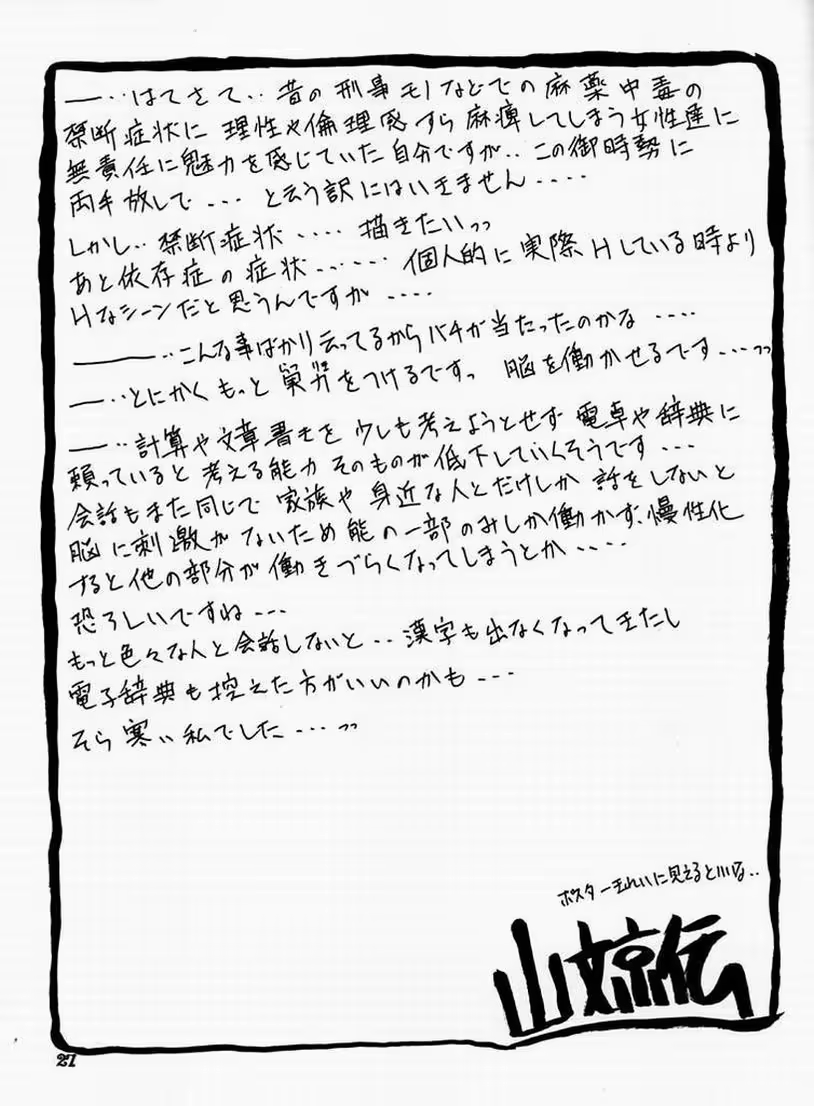 ―‥はてさて‥昔の刑事モノなどでの麻薬中毒の
禁断症状に理性や倫理感すら麻痺してしまう女性達に
無責任に魅力を感じていた自分ですが‥この御時勢に
両手放しで‥‥と云う訳にはいきません‥‥
しかし‥禁断症状‥‥描きたいっっ
あと依存症の症状‥‥‥個人的に実際Hしている時より
Hなシーンだと思うんですが‥‥
―――‥こんな事ばかり云ってるからバチが当たったのかな‥‥
―‥とにかくもっと
をつけるですっ 脳を働かせるです‥‥っっ
―‥計算や文章書きを少しも考えようとせず電卓や辞典に
頼っていると考える能力そのものが低下していくそうです‥‥
会話もまた同じで家族や身近な人とだけしか話をしないと
脳に刺激がないため能の一部のみしか働かず、慢性化
すると他の部分が働きづらくなってしまうとか‥‥
恐ろしいですね‥‥
もっと色々な人と会話しないと‥漢字も出なくなってきたし
電子辞典も控えた方がいいのかも‥‥
そら寒い私でした‥‥っっ
ポスターきれいに見えるといいな‥
27